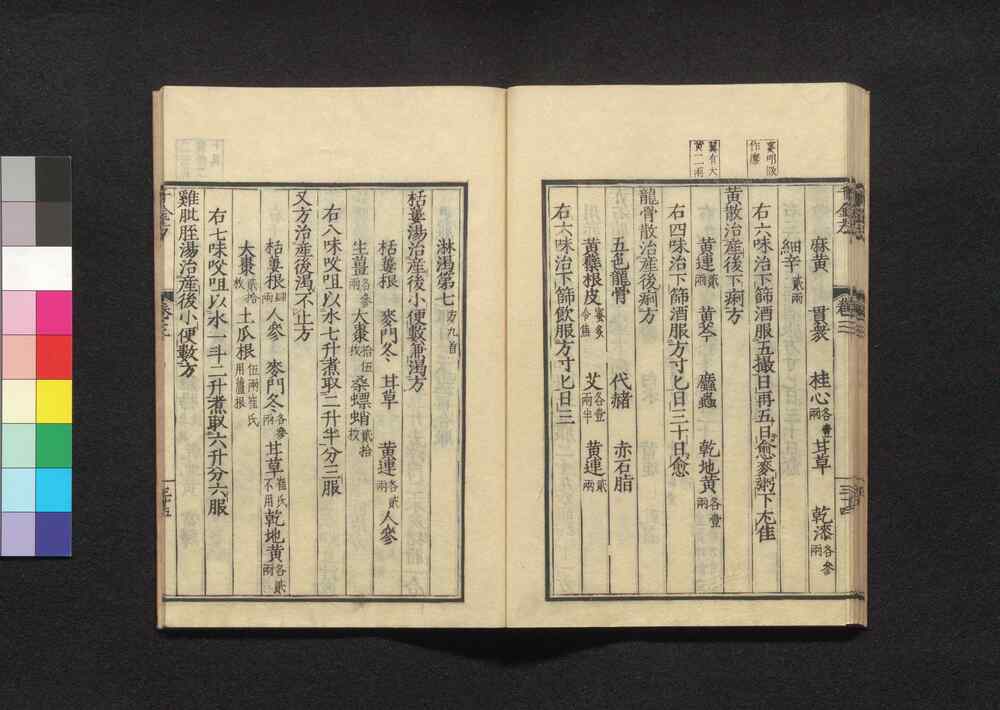 麻黄 貫衆 桂心各壹兩 甘草 乾漆各參兩
細辛貳兩
右六味治下篩酒服五撮日再五日愈麥粥下尤佳
黄散治産後下痢方
黄連貳兩 黄芩 䗪蟲 乾地黄各壹兩
右四味治下篩酒服方寸匕日三十日愈
龍骨散治産後痢方
五色龍骨 代赭 赤石脂
黄蘗根皮蜜炙令焦 艾各壹兩半 黄連貳兩
右六味治下篩飲服方寸匕日三
淋渴第七方九首
栝蔞湯治産後小便數兼渴方
栝蔞根 麥門冬 甘草 黄連各貳兩 人參
生薑各參兩 大棗拾伍枚 桑螵蛸貳拾枚
右八味㕮咀以水七升煮取二升半分三服
又方治産後渴不止方
栝蔞根肆兩 人參 麥門冬各參兩 甘草崔氏不用 乾地黄各貳兩
大棗貳拾枚 土瓜根伍兩崔氏用蘆根
右七味㕮咀以水一斗二升煮取六升分六服
雞肶胵湯治産後小便數方